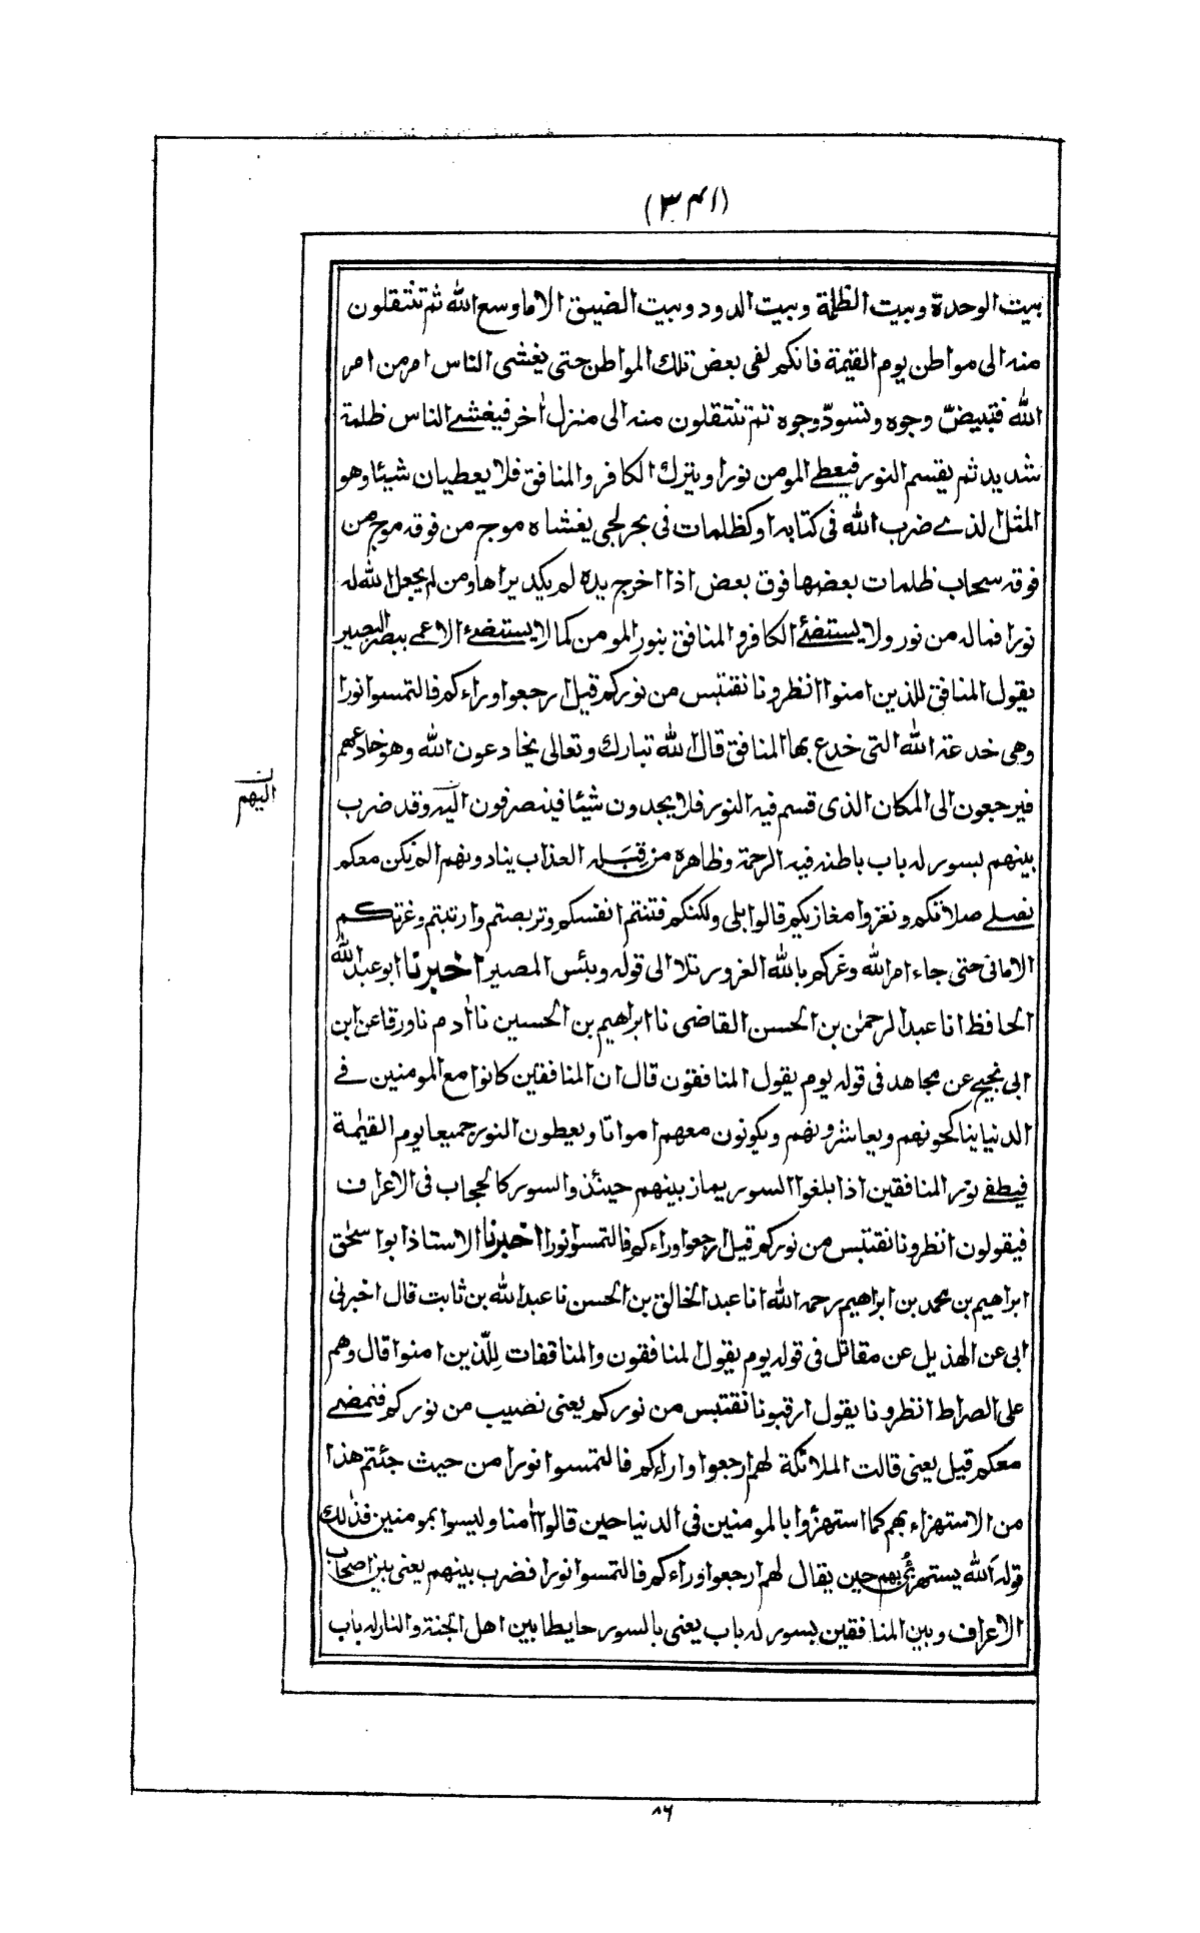 (٣٤١)
بيت الوحدة وبيت الظلمة وبيت الدود وبيت الضيق الا ما وسع الله ثم تنتقلون
منه الى مواطن يوم القيمة فانكم لفى بعض تلك المواطن حتى يغشى الناس امر من امر
الله فتبيضّ وجوه وتسودّ وجوه ثم تنتقلون منه الى منزل اٰخر فيغشے الناس ظلمة
شديد ثم يقسم النور فيعطے المومن نورا ويترك الكافر والمنافق فلا يعطيان شيئا وهو
المثل الذے ضرب الله فى كتابه او كظلمات فى بحر لجى يغشاه موج من فوقه موج من
فوقه سحاب ظلمات بعضها فوق بعض اذا اخرج يده لم يكد يراها ومن لم يجعل الله له
نورا فما له من نور ولا يستضئے الكافر والمنافق بنور المومن كما لا يستضےء الاعمے ببصر البصير
يقول المنافق للذين امنوا انظرونا نقتبس من نوركم قيل ارجعوا وراءكم فالتمسوا نورا
وهى خدعة الله التى خدع بها المنافق قال الله تبارك وتعالى يخادعون الله وهو خادعهم
فيرجعون الى المكان الذى قسم فيه النور فلا يجدون شيئا فينصرفون اليه وقد ضرب
ن
اليهم
بينهم بسور له باب باطنه فيه الرحمة وظاهره من قِبَله العذاب ينادونهم الم نكن معكم
نصلے صلاتكم ونغزوا مغازيكم قالوا بلى ولكنكم فتنتم انفسكم وتربصتم وارتبتم وغرتكم
الامانى حتى جاء امر الله وغركم بالله الغرور تلا الى قوله وبئس المصير اخبرنا ابو عبد الله
الحافظ انا عبد الرحمٰن بن الحسن القاضى نا ابراهيم بن الحسين نا اٰدم نا ورقا عن ابن
ابى نجيح عن مجاهد فى قوله يوم يقول المنافقون قال ان المنافقين كانوا مع المومنين فے
الدنيا يناكحونهم ويعاشرونهم ويكونون معهم امواتا ويعطون النور جميعا يوم القيٰمة
فيطفے نور المنافقين اذا بلغوا السور يماز بينهم حينئذ والسور كالحجاب فى الاعراف
فيقولون انظرونا نقتبس من نوركم قيل ارجعوا وراءكم فالتمسوا نورا اخبرنا الاستاذ ابو اسحٰق
ابراهيم بن محمد بن ابراهيم رحمه الله انا عبد الخالق بن الحسن نا عبد الله بن ثابت قال اخبرنى
ابى عن الهذيل عن مقاتل فى قوله يوم يقول المنافقون والمنافقات للّذين امنوا قال وهم
على الصراط انظرونا يقول ارقبونا نقتبس من نوركم يعنى نصيب من نوركم فنمضے
معكم قيل يعنى قالت الملائكة لهم ارجعوا وراءكم فالتمسوا نورا من حيث جئتم هذا
من الاستهزاء بهم كما استهزؤا بالمومنين فى الدنيا حين قالوا اٰمنا وليسوا بمومنين فذلك
قوله الله يستهزئُ بهم حين يقال لهم ارجعوا وراءكم فالتمسوا نورا فضرب بينهم يعنى بين اصحاب
الاعراف وبين المنافقين بسور له باب يعنى بالسور حايطا بين اهل الجنة والنار له باب
٨٦